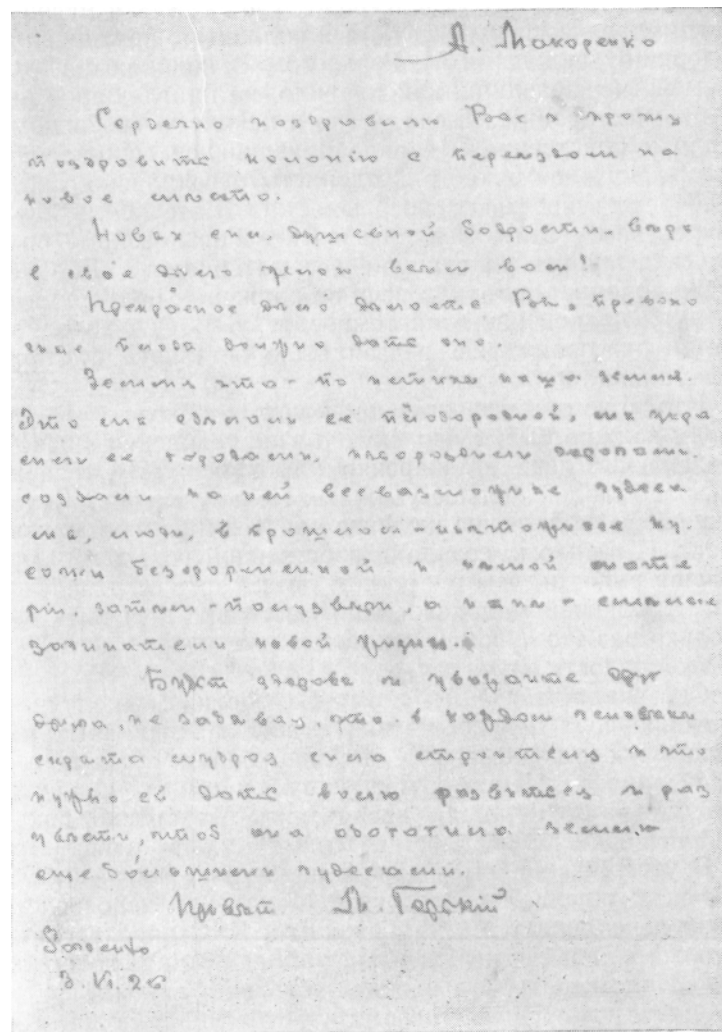 А. Макаренко
Сердечно поздравляю Вас и прошу
поздравить колонию с переездом на
новое место.
Новых сил, душевной бодрости, веры
в свое дело желаю всем вам!
Прекрасное дело делаете Вы, превосход
ные плоды должно дать оно.
Земля эта – по истине наша земля.
Это мы сделали ее плодородной, мы укра
сили ее городами, избороздили дорогами,
создали на ней всевозможные чудеса
мы, люди, в прошлом – ничтожные ку
сочки бесформенной и немой мате
рии, затем – полузвери, а ныне – смелые
зачинатели новой жизни.
Будьте здоровы и уважайте друг
друга, не забывая, что в каждом человеке
скрыта мудрая сила строителя и что
нужно ей дать волю развиться и рас
цвести, чтоб она обогатила землю
еще большими чудесами.
Привет М. Горький
Sorrento
3. VI. 26